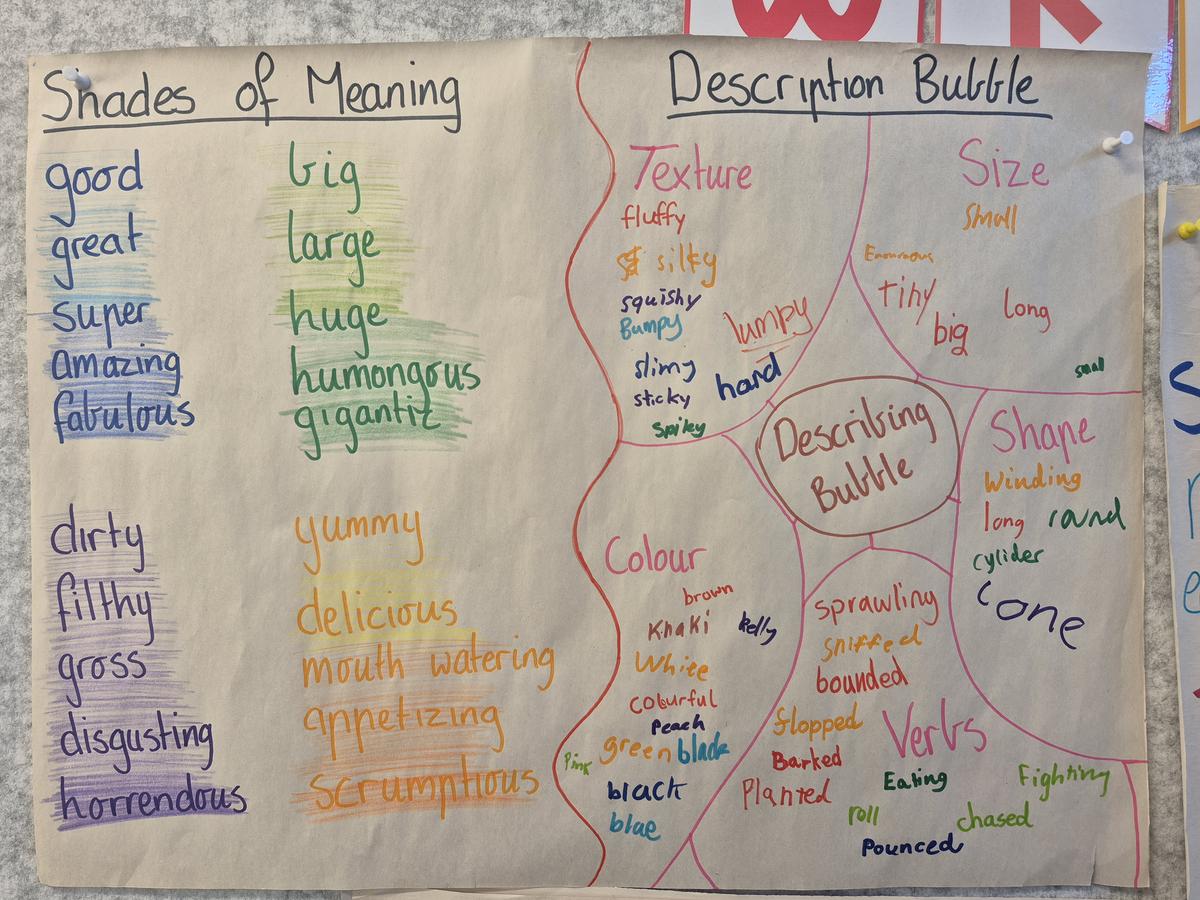 Shades of Meaning
good
great
super
amazing
fabulous
big
large
huge
humongous
gigantic
dirty
filthy
gross
disgusting
horrendous
yummy
delicious
mouth watering
appetizing
scrumptious
Description Bubble
Texture
fluffy
silky
squishy
Bumpy
lumpy
slimy
hard
sticky
Spikey
Size
Small
Enormous
tiny
long
big
small
Describing
Bubble
Shape
Winding
long round
cylider
cone
Colour
brown
Khaki kelly
White
colourful
Peach
green black
Pink
black
blue
sprawling
sniffed
bounded
flopped
Verbs
Barked
Eating
Fighting
Planted
roll
chased
Pounced